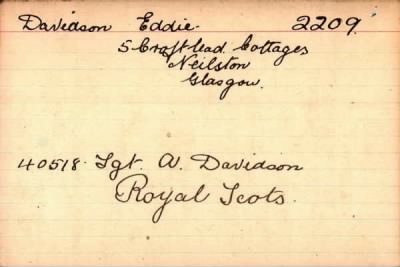 Davidson Eddie. 2209.
5 Croft head Cottages
Neilston
Glasgow.
40518. Sgt. A. Davidson
Royal Scots.